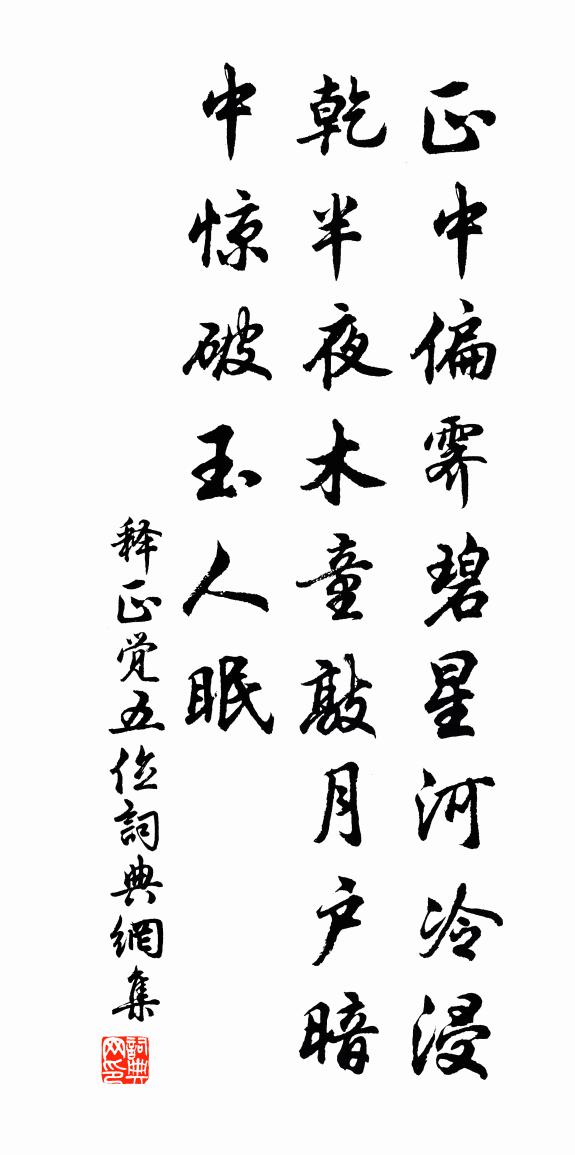 正中偏霽碧星河冷浸
乾半夜木童敲月户暗
中惊破玉人眠
释正觉五位詞典網集
詞典网印